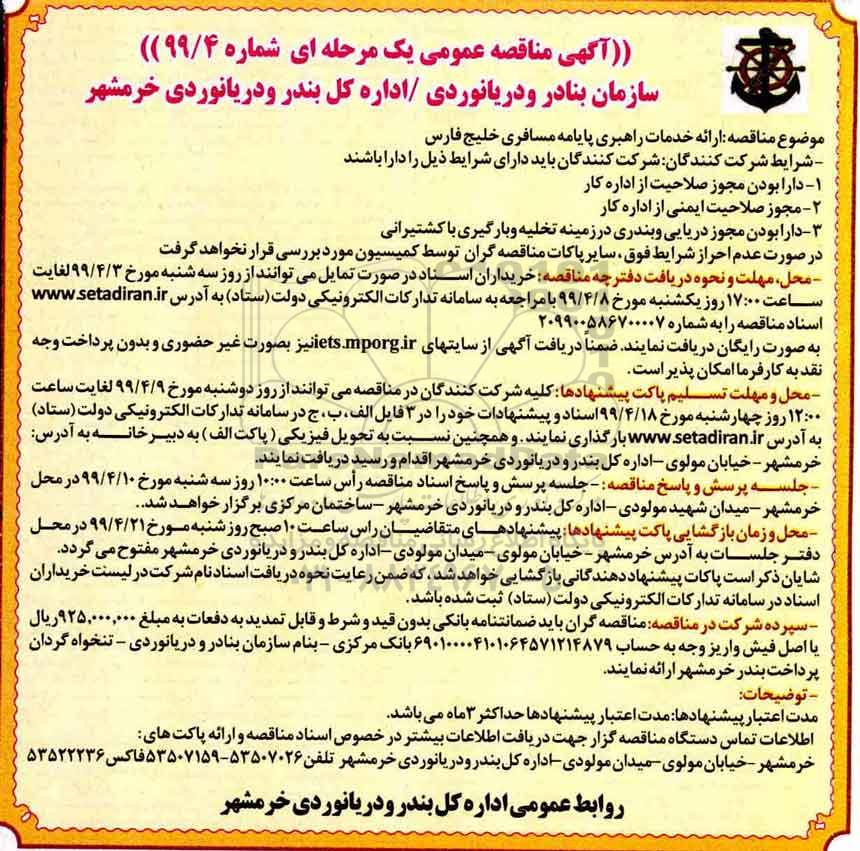 ((آگهی مناقصه عمومی یک مرحله ای شماره ۹۹/۴))
سازمان بنادر ودریانوردی /اداره کل بندر ودریانوردی خرمشهر
موضوع مناقصه:ارائه خدمات راهبری پایامه مسافری خلیج فارس
-شرایط شرکت کنندگان: شرکت کنندگان باید دارای شرایط ذیل را دارا باشند
۱-دارا بودن مجوز صلاحیت از اداره کار
۲-مجوز صلاحیت ایمنی از اداره کار
۳-دارا بودن مجوز دریایی وبندری درزمینه تخلیه وبارگیری با کشتیرانی
در صورت عدم احراز شرایط فوق، سایر پاکات مناقصه گران توسط کمیسیون مورد بررسی قرار نخواهد گرفت
-محل، مهلت و نحوه دریافت دفترچه مناقصه: خریداران اسناد در صورت تمایل می توانند از روز سه شنبه مورخ ۹۹/۴/۳ لغایت
ساعت ۱۷:۰۰ روز یکشنبه مورخ ۹۹/۴/۸ با مراجعه به سامانه تدارکات الکترونیکی دولت (ستاد) به آدرس www.setadiran.ir
اسناد مناقصه را به شماره ۲۰۹۹۰۰۵۸۶۷۰۰۰۰۷
به صورت رایگان دریافت نمایند. ضمنا دریافت آگهی از سایتهای iets.mporg.ir نیز بصورت غیر حضوری و بدون پرداخت وجه
نقد به کارفرما امکان پذیر است.
-محل و مهلت تسلیم پاکت پیشنهادها: کلیه شرکت کنندگان در مناقصه می توانند از روز دوشنبه مورخ ۹۹/۴/۹ لغایت ساعت
۱۲:۰۰ روز چهارشنبه مورخ ۹۹/۴/۱۸ اسناد و پیشنهادات خود را در ۳ فایل الف، ب، ج در سامانه تدارکات الکترونیکی دولت (ستاد)
به آدرس www.setadiran.ir بارگذاری نمایند. و همچنین نسبت به تحویل فیزیکی (پاکت الف) به دبیرخانه به آدرس:
خرمشهر -خیابان مولوی -اداره کل بندر و دریانوردی خرمشهر اقدام و رسید دریافت نمایند.
-جلسه پرسش و پاسخ مناقصه: -جلسه پرسش و پاسخ اسناد مناقصه رأس ساعت ۱۰:۰۰ روز سه شنبه مورخ ۹۹/۴/۱۰ در محل
خرمشهر -میدان شهید مولودی -اداره کل بندر و دریانوردی خرمشهر -ساختمان مرکزی برگزار خواهد شد..
-محل و زمان بازگشایی پاکت پیشنهادها: پیشنهادهای متقاضیان راس ساعت ۱۰ صبح روز شنبه مورخ ۹۹/۴/۲۱ در محل
دفتر جلسات به آدرس خرمشهر -خیابان مولوی -میدان مولودی -اداره کل بندر و دریانوردی خرمشهر مفتوح می گردد.
شایان ذکر است پاکات پیشنهاد دهندگانی بازگشایی خواهد شد، که ضمن رعایت نحوه دریافت اسناد نام شرکت در لیست خریداران
اسناد در سامانه تدارکات الکترونیکی دولت (ستاد) ثبت شده باشد.
-سپرده شرکت در مناقصه: مناقصه گران باید ضمانتنامه بانکی بدون قید و شرط و قابل تمدید به دفعات به مبلغ ۹۲۵,۰۰۰,۰۰۰ ریال
یا اصل فیش واریز وجه به حساب ۶۹۰۱۰۰۰۰۴۱۰۱۰۶۴۵۷۱۲۱۴۸۷۹ بانک مرکزی -بنام سازمان بنادر و دریانوردی -تنخواه گردان
پرداخت بندر خرمشهر ارائه نمایند.
-توضیحات:
مدت اعتبار پیشنهادها: مدت اعتبار پیشنهادها حداکثر ۳ ماه می باشد.
اطلاعات تماس دستگاه مناقصه گزار جهت دریافت اطلاعات بیشتر در خصوص اسناد مناقصه و ارائه پاکت های:
خرمشهر -خیابان مولوی -میدان مولودی -اداره کل بندر و دریانوردی خرمشهر تلفن ۵۳۵۰۷۰۲۶-۵۳۵۰۷۱۵۹ فاکس ۵۳۵۲۲۲۳۶
روابط عمومی اداره کل بندر و دریانوردی خرمشهر